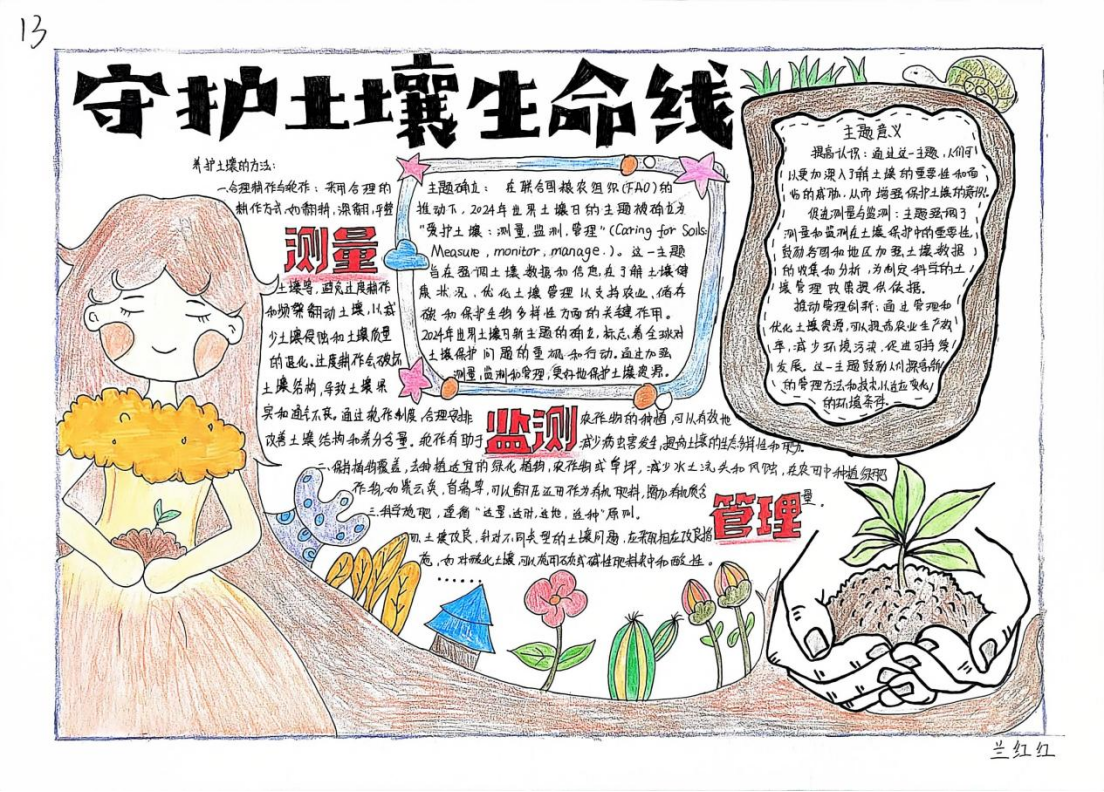 13
守护土壤生命线
养护土壤的方法：
一、合理耕作与轮作：采用合理的
耕作方式，如翻耕，深翻，平整
测量
土壤等，避免过度耕作
和频繁翻动土壤，以减
少土壤侵蚀和土壤质量
的退化。过度耕作会破坏
土壤结构，导致土壤紧
实和通气不良。通过轮作制度，合理安排
监测
农作物的种植，可以有效地
改善土壤结构和养分含量。轮作有助于
减少病虫害发生，提高土壤的生态多样性和
二、保持植物覆盖，去种植适宜的绿化植物，农作物或草坪，减少水土流失和风蚀，在农田中种植绿肥
作物，如紫云英，苜蓿等，可以翻压还田作为有机肥料，增加有机质含
管理
量。
三、科学施肥，遵循“适量，适时，适地，适种”原则。
四、土壤改良，针对不同类型的土壤问题，应采取相应改良措
施，如对酸化土壤可以施用碱性肥料来中和酸性。
主题确立： 在联合国粮农组织(FAO)的
推动下，2024年世界土壤日的主题被确立为
“爱护土壤：测量，监测，管理”(Caring for Soils:
Measure, monitor, manage.)。这一主题
旨在强调土壤数据和信息在了解土壤健
康状况，优化土壤管理以支持农业、储存
碳和保护生物多样性方面的关键作用。
2024年世界土壤日新主题的确立，标志着全球对
土壤保护问题的重视和行动。通过加强
测量，监测和管理，更好地保护土壤资源。
主题意义
提高认识：通过这一主题，人们可
以更加深入了解土壤的重要性和面
临的威胁，从而增强保护土壤的意识。
促进测量与监测：主题强调了
测量和监测在土壤保护中的重要性，
鼓励各国和地区加强土壤数据
的收集和分析，为制定科学的土
壤管理政策提供依据。
推动管理创新：通过管理和
优化土壤资源，可以提高农业生产效
率，减少环境污染，促进可持续
发展。这一主题鼓励人们探索新
的管理方法和技术以适应变化
的环境条件。
兰红红